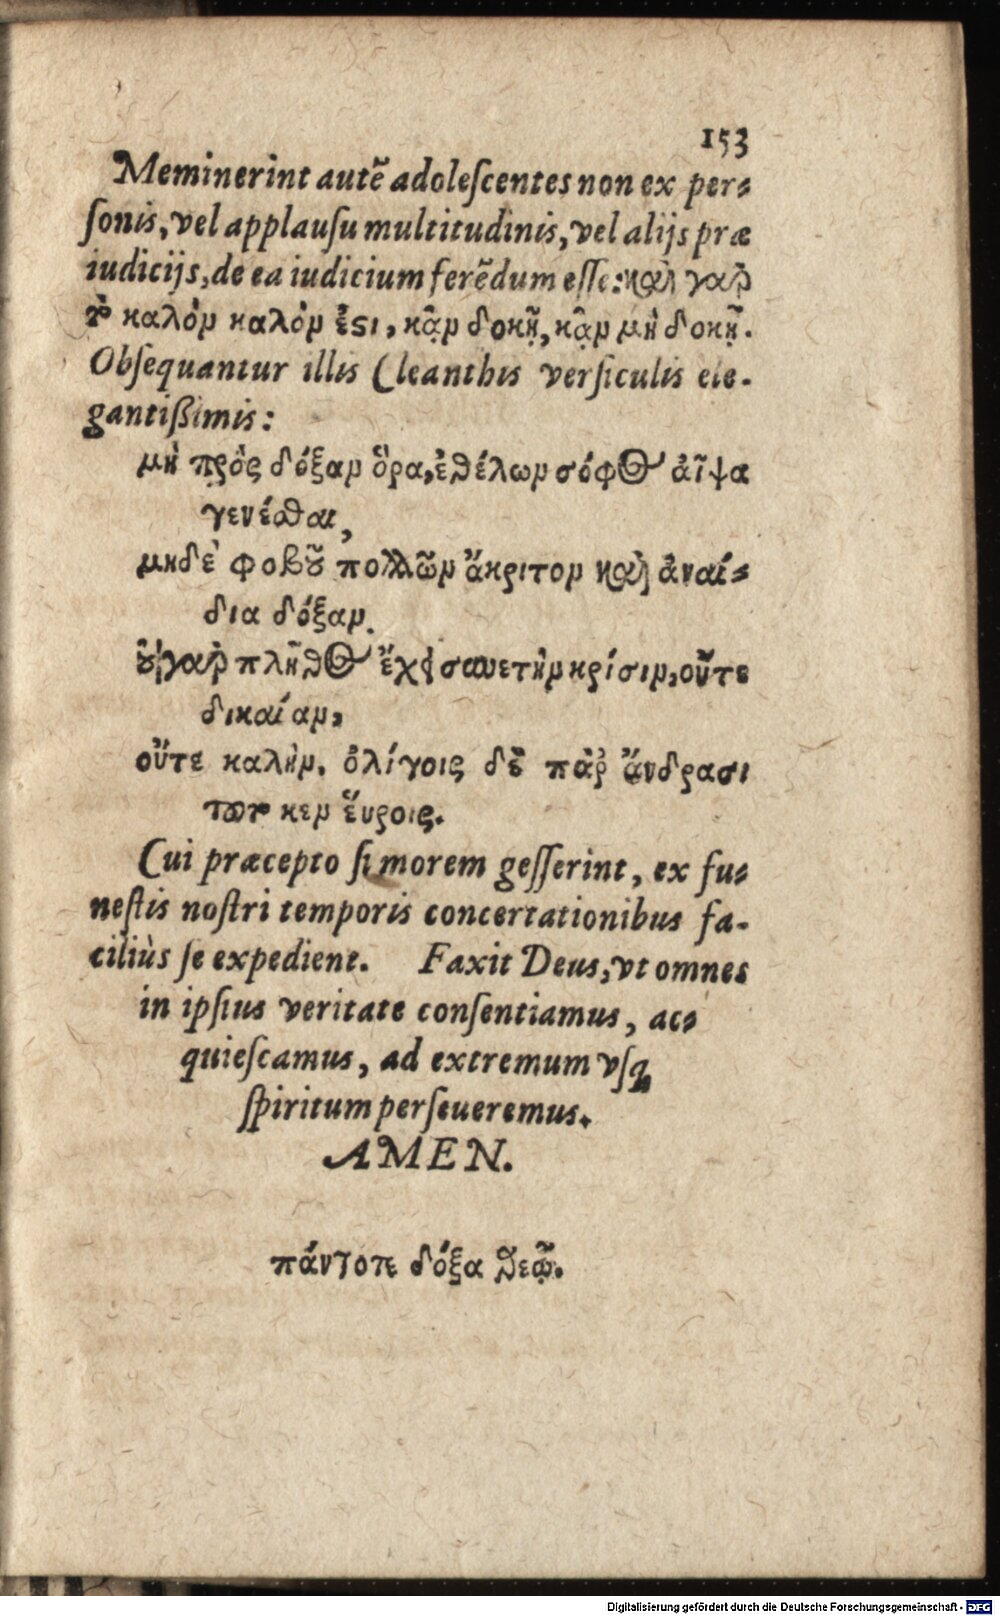 153
Meminerint autē adoleſcentes non ex per-
ſonis, vel applauſu multitudinis, vel alijs præ
iudicijs, de ea iudicium ferēdum eſſe: καὶ γαρ
τὸ καλὸν καλὸν ἐϛι, κᾂν δοκῇ, κᾂν μὴ δοκῇ.
Obſequantur illis Cleanthis verſiculis ele-
gantißimis:
μὴ πρὸς δόξαν ὅρα, ἐθέλων σόφος ἀῖψα
γενέσθαι,
μηδὲ φοβοῦ πολλῶν ἄκριτον καὶ ἀναί-
δια δόξαν.
οὐ γὰρ πλῆθος ἔχει συνετὴν κρίσιν, οὔτε
δικαίαν,
οὔτε καλὴν. ὀλίγοις δὲ παρ ἄνδρασι
τοῦτο κεν ἕυροις.
Cui præcepto ſi morem geſſerint, ex fu-
neſtis noſtri temporis concertationibus fa-
ciliùs ſe expedient. Faxit Deus, vt omnes
in ipſius veritate conſentiamus, ac-
quieſcamus, ad extremum vſq́;
ſpiritum perſeueremus.
AMEN.
πάντοτε δόξα θεῷ.
Digitalisierung gefördert durch die Deutsche Forschungsgemeinschaft - DFG